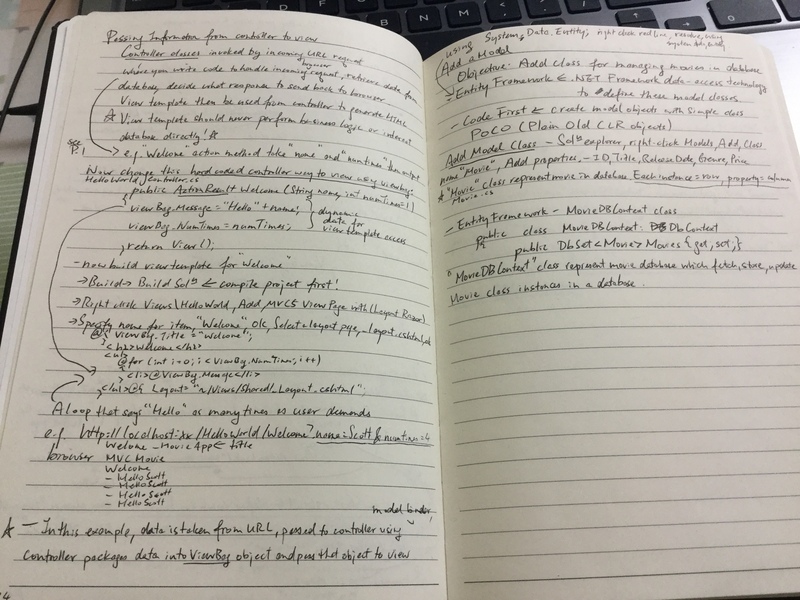 Passing Information from controller to view
Controller classes invoked by incoming URL request
browser
where you write code to handle incoming request, retrieve data from
database, decide what response to send back to browser
View template then be used from controller to generate HTML
☆ View template should never perform business logic or interact
database directly! ☆
see P.1
→ e.g. "Welcome" action method take "name" and "numtime" then output
Now change this hard coded controller way to view using viewbag.
HelloWorldController.cs
public ActionResult Welcome (String name, int numTimes=1)
{ viewBag.Message = "Hello" + name;
viewBag.NumTimes = numTimes;
} dynamic data for view template access
return View();
- now build view template for "Welcome"
→ Build → Build Solⁿ ← compile project first!
→ Right click Views\HelloWorld, Add, MVC5 View Page with (Layout Razor)
→ Specify name for item, "Welcome", Ok, Select a layout page, _Layout.cshtml, ok
@{ ViewBag.Title = "Welcome";
}<h2>Welcome</h2>
<ul>
@for (int i=0; i < ViewBag.NumTimes; i++)
{ <li>@ViewBag.Message</li>
}</ul>@{ Layout = "~/Views/Shared/_Layout.cshtml";
A loop that says "Hello" as many times as user demands
e.g. http://localhost:xx/HelloWorld/Welcome?name=Scott&numtimes=4
Welcome - Movie App ← title
browser MVC Movie
Welcome
- Hello Scott
- Hello Scott
- Hello Scott
- Hello Scott
model binder,
☆ - In this example, data is taken from URL, passed to controller using
Controller packages data into ViewBag object and pass that object to view
using System.Data.Entity; right click red line, resolve, using
System.Data.Entity
Add a Model
Objective: Add class for managing movies in database
- Entity Framework ← .NET Framework data-access technology
to define these model classes
- Code First ← create model objects with simple class
POCO (Plain Old CLR objects)
Add Model Class - Solⁿ explorer, right-click Models, Add, Class
name "Movie", Add properties - ID, Title, ReleaseDate, Genre, Price
☆ "Movie" class represent movie in database. Each instance = row, property = column
Movie.cs
- Entity Framework - MovieDBContext class
public class MovieDBContext: DbContext
{ public DbSet<Movie> Movies {get; set;}
"MovieDBContext" class represent movie database which fetch, store, update
Movie class instances in a database.